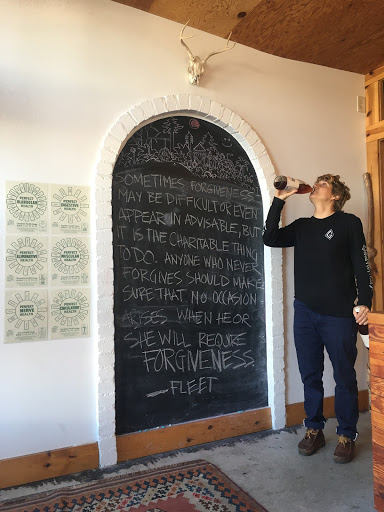 SOMETIMES FORGIVENESS
MAY BE DIFFICULT OR EVEN
APPEAR INADVISABLE, BUT
IT IS THE CHARITABLE THING
TO DO. ANYONE WHO NEVER
FORGIVES SHOULD MAKE
SURE THAT NO OCCASION
ARISES WHEN HE OR
SHE WILL REQUIRE
FORGIVENESS.
- FLEET
PERFECT
GLANDULAR
HEALTH
PERFECT
DIGESTIVE
HEALTH
PERFECT
ELIMINATIVE
HEALTH
PERFECT
MUSCULAR
HEALTH
PERFECT
NERVE
HEALTH
PERFECT
CIRCULATORY
HEALTH